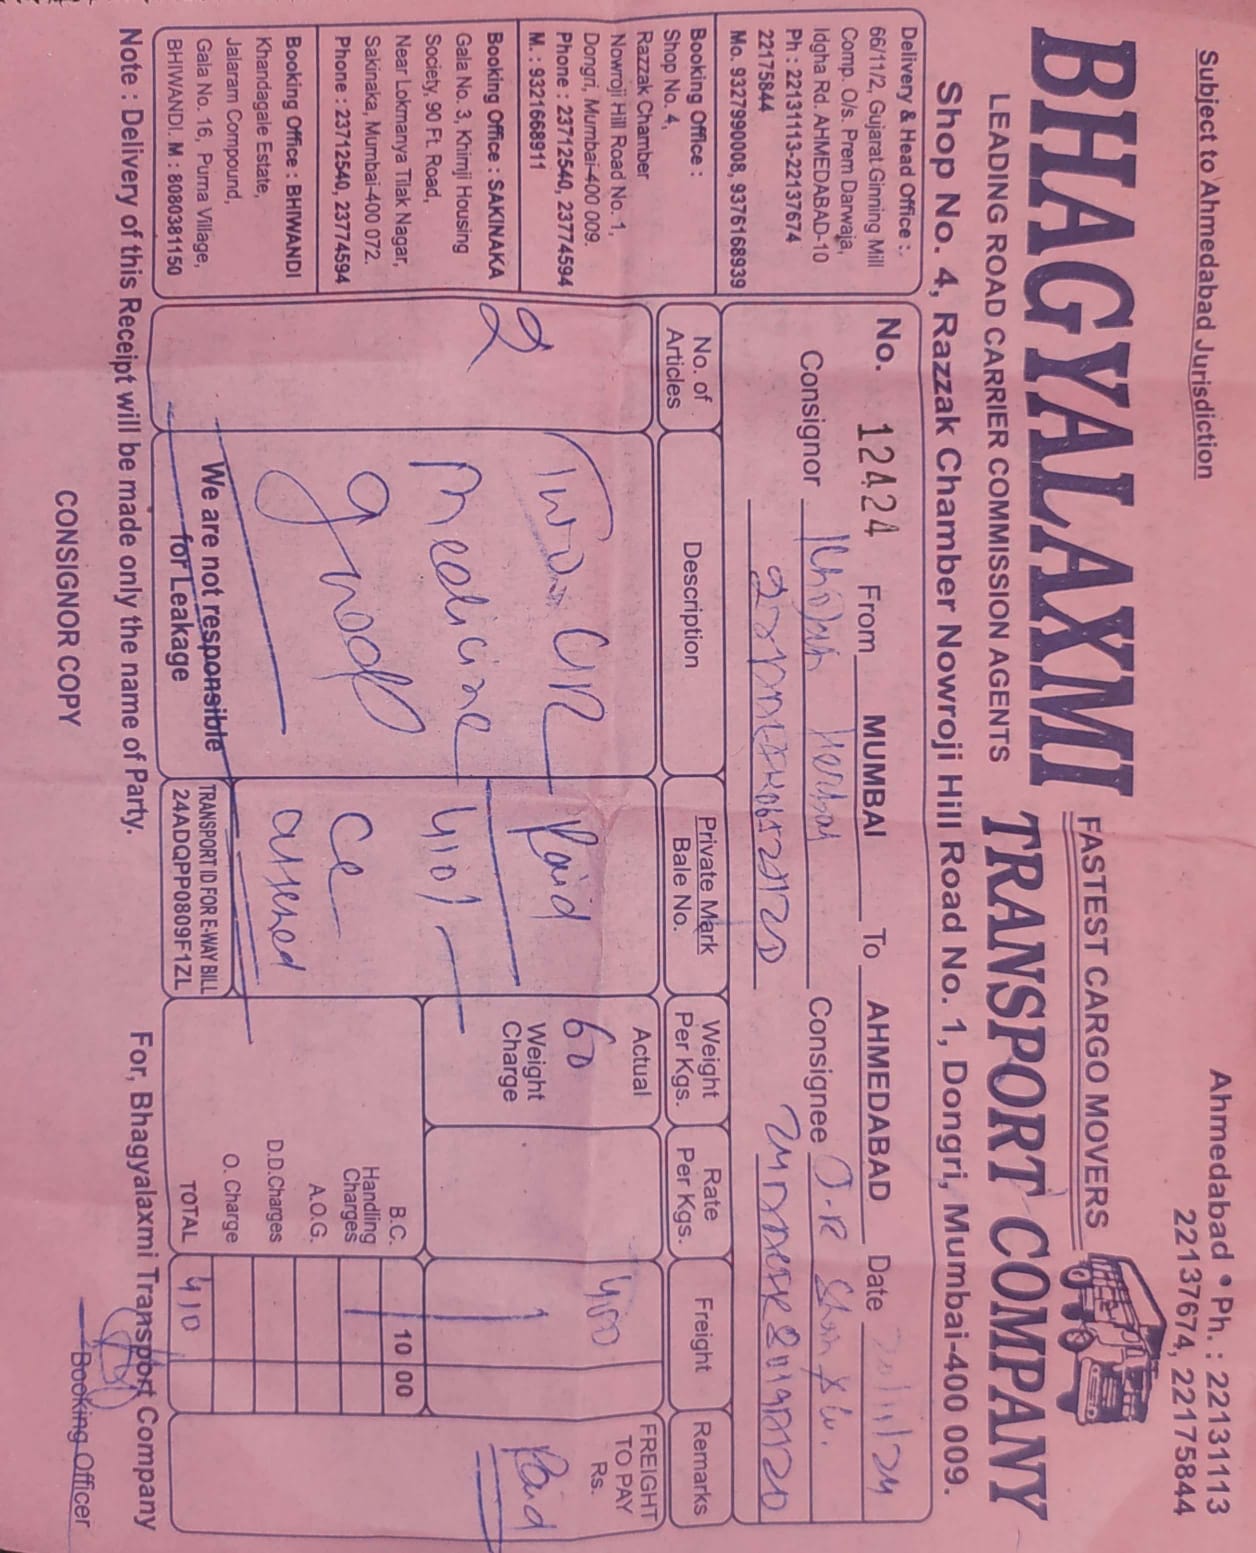 Subject to Ahmedabad Jurisdiction
Ahmedabad • Ph. : 22131113
22137674, 22175844
BHAGYALAXMI
FASTEST CARGO MOVERS
TRANSPORT COMPANY
LEADING ROAD CARRIER COMMISSION AGENTS
Shop No. 4, Razzak Chamber Nowroji Hill Road No. 1, Dongri, Mumbai-400 009.
Delivery & Head Office :.
66/11/2, Gujarat Ginning Mill
Comp. O/s. Prem Darwaja,
Idgha Rd. AHMEDABAD-10
Ph : 22131113-22137674
22175844
Mo. 9327990008, 9376168939
Booking Office :
Shop No. 4,
Razzak Chamber
Nowroji Hill Road No. 1,
Dongri, Mumbai-400 009.
Phone : 23712540, 23774594
M. : 9321668911
Booking Office : SAKINAKA
Gala No. 3, Khimji Housing
Society, 90 Ft. Road,
Near Lokmanya Tilak Nagar,
Sakinaka, Mumbai-400 072.
Phone : 23712540, 23774594
Booking Office : BHIWANDI
Khandagale Estate,
Jalaram Compound,
Gala No. 16, Purna Village,
BHIWANDI. M : 8080381150
No. 12424 From MUMBAI To AHMEDABAD Date 20/11/24
Consignor Consignee
No. of Articles
Description
Private Mark
Bale No.
Weight Per Kgs.
Rate Per Kgs.
Freight
Remarks
2
Two
Medicine
good
Paid
410/-
Actual
60
Weight Charge
400
FREIGHT TO PAY Rs.
Paid
B.C. 10 00
Handling Charges
A.O.G.
D.D.Charges
O. Charge
TOTAL 410
We are not responsible
for Leakage
TRANSPORT ID FOR E-WAY BILL
24ADQPP0809F1ZL
Note : Delivery of this Receipt will be made only the name of Party.
For, Bhagyalaxmi Transport Company
CONSIGNOR COPY
Booking Officer